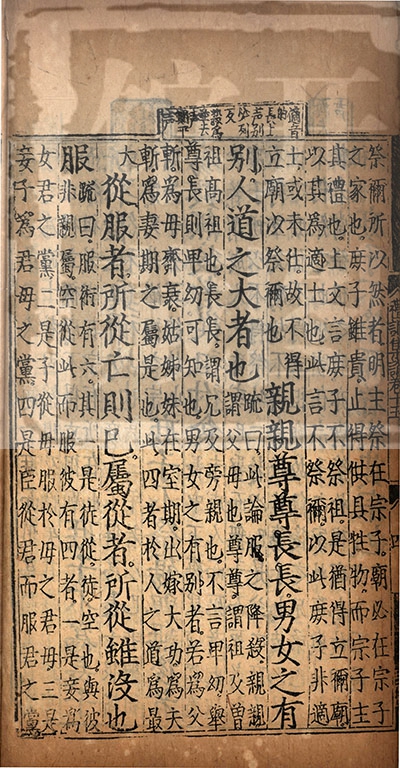 適音的
長上聲
別必列
反
祭禰所以然者明主祭在宗子廟必在宗子
之家也庶子雖貴止得供具牲物而宗子主
其禮也上文言庶子不祭祖是猶得立禰廟
以其為適士也此言不祭禰以此庶子非適
士或未仕故不得
立廟以祭禰也
親親尊尊長長男女之有
別人道之大者也
疏曰此論服之降殺親親
謂父母也尊尊謂祖及曾
祖高祖也長長謂兄及旁親也不言卑幼舉
尊長則卑幼可知也男女之有別者若為父
斬為母齊衰姑姊妹在室期出嫁大功為夫
斬為妻期之屬是也此四者於人之道為最
大
從服者所從亡則已屬從者所從雖沒也
服
疏曰服術有六其一是徒從徒空也與彼
非親屬空從此而服彼有四者一是妾為
女君之黨二是子從母服於母之君母三是
妾子為君母之黨四是臣從君而服君之黨